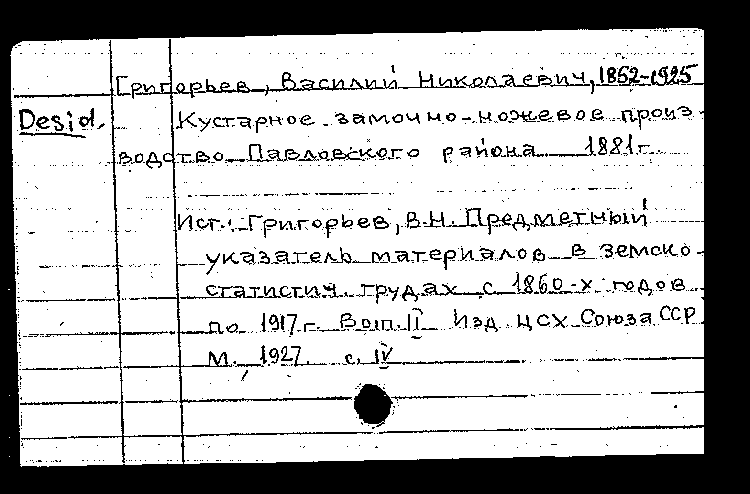 Григорьев, Василий Николаевич, 1852-1925
Desid. Кустарное замочно-ножевое произ-
водство Павловского района 1881г.
Ист.: Григорьев, В.Н. Предметный
указатель материалов в земско-
статистич. трудах с 1860-х годов
по 1917г. Вып. II Изд. ЦСХ Союза ССР
М. 1927. с. IV